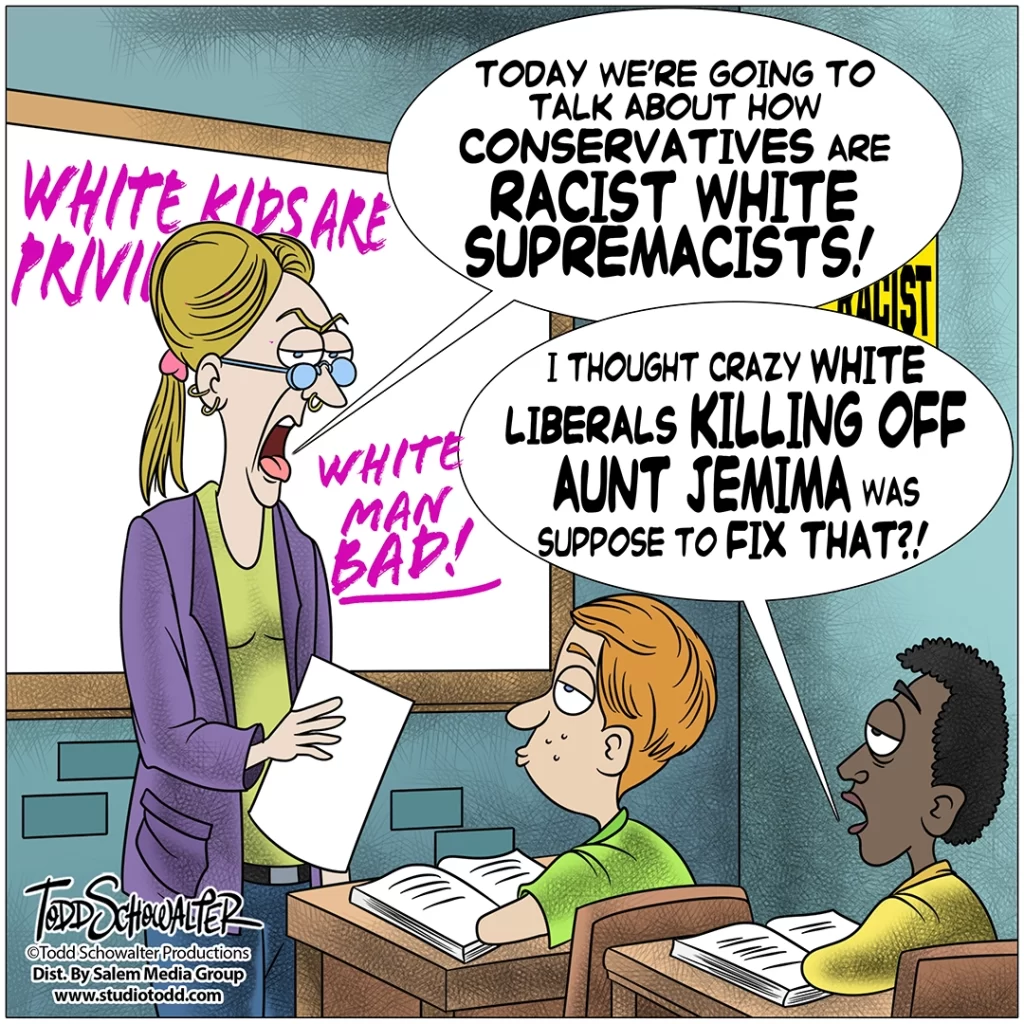 TODAY WE'RE GOING TO
TALK ABOUT HOW
CONSERVATIVES ARE
RACIST WHITE
SUPREMACISTS!
WHITE KIDS ARE
PRIVIL
RACIST
I THOUGHT CRAZY WHITE
LIBERALS KILLING OFF
AUNT JEMIMA WAS
SUPPOSE TO FIX THAT?!
WHITE
MAN
BAD!
TODD SCHOWALTER
©Todd Schowalter Productions
Dist. By Salem Media Group
www.studiotodd.com